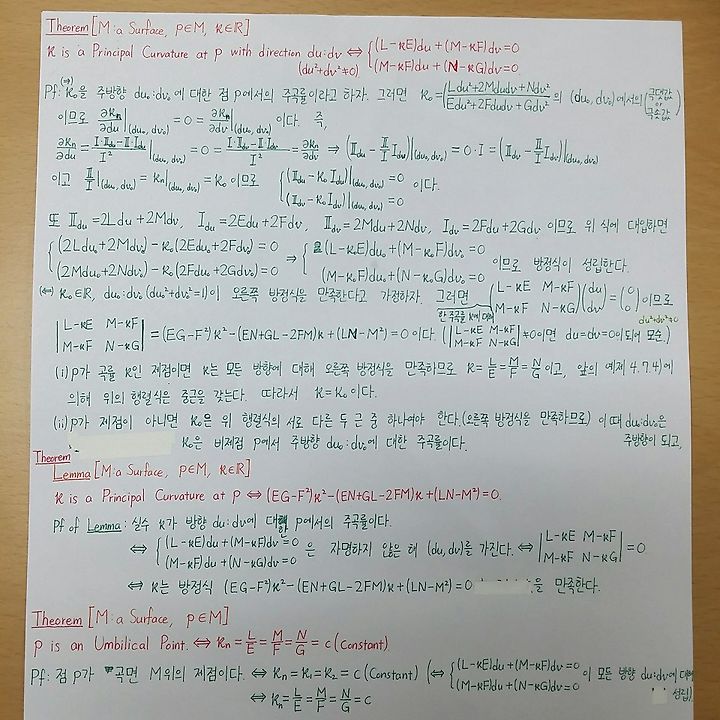 Theorem [M: a Surface, p∈M, κ∈ℝ]
κ is a Principal Curvature at p with direction du:dv ⇔ { (L-κE)du + (M-κF)dv = 0
(du²+dv²≠0) (M-κF)du + (N-κG)dv = 0.
Pf: (⇒) κ₀을 주방향 du₀:dv₀에 대한 점 p에서의 주곡률이라고 하자. 그러면 κ₀ = (Ldu²+2Mdudv+Ndv²)/(Edu²+2Fdudv+Gdv²)의 (du₀, dv₀)에서의 (극댓값 이 극솟값)
이므로 ∂κn/∂du|(du₀, dv₀) = 0 = ∂κn/∂dv|(du₀, dv₀) 이다. 즉,
∂κn/∂du = (I·II_du - II·I_du)/I² |(du₀, dv₀) = 0 = (I·II_dv - II·I_dv)/I² = ∂κn/∂dv ⇒ (II_du - II/I I_du)|(du₀, dv₀) = 0·I = (II_dv - II/I I_dv)|(du₀, dv₀)
이고 II/I|(du₀, dv₀) = κn|(du₀, dv₀) = κ₀ 이므로 { (II_du - κ₀ I_du)|(du₀, dv₀) = 0
(II_dv - κ₀ I_dv)|(du₀, dv₀) = 0 이다.
또 II_du = 2Ldu + 2Mdv, I_du = 2Edu + 2Fdv, II_dv = 2Mdu + 2Ndv, I_dv = 2Fdu + 2Gdv 이므로 위 식에 대입하면
{ (2Ldu₀ + 2Mdv₀) - κ₀(2Edu₀ + 2Fdv₀) = 0 ⇒ { (L-κ₀E)du₀ + (M-κ₀F)dv₀ = 0
(2Mdu₀ + 2Ndv₀) - κ₀(2Fdu₀ + 2Gdv₀) = 0 (M-κ₀F)du₀ + (N-κ₀G)dv₀ = 0 이므로 방정식이 성립한다.
(⇐) κ₀∈ℝ, du₀:dv₀ (du₀²+dv₀²=1)이 오른쪽 방정식을 만족한다고 가정하자. 그러면 (L-κE M-κF / M-κF N-κG)(du / dv) = (0 / 0) 이므로
한 주곡률 κ에 대해 du²+dv²≠0
|L-κE M-κF / M-κF N-κG| = (EG-F²)κ² - (EN+GL-2FM)κ + (LN-M²) = 0 이다. (|L-κE M-κF / M-κF N-κG| ≠ 0이면 du=dv=0이 되어 모순.)
(i) p가 곡률 κ인 제점이면 κ는 모든 방향에 대해 오른쪽 방정식을 만족하므로 κ = L/E = M/F = N/G 이고, 앞의 예제 4.7.4)에
의해 위의 행렬식은 중근을 갖는다. 따라서 κ = κ₀ 이다.
(ii) p가 제점이 아니면 κ₀은 위 행렬식의 서로 다른 두 근 중 하나여야 한다. (오른쪽 방정식을 만족하므로) 이때 du₀:dv₀은
주방향이 되고,
κ₀은 비제점 p에서 주방향 du₀:dv₀에 대한 주곡률이다.
Theorem
Lemma [M: a Surface, p∈M, κ∈ℝ]
κ is a Principal Curvature at p ⇔ (EG-F²)κ² - (EN+GL-2FM)κ + (LN-M²) = 0.
Pf of Lemma: 실수 κ가 방향 du:dv에 대한 p에서의 주곡률이다.
⇔ { (L-κE)du + (M-κF)dv = 0
(M-κF)du + (N-κG)dv = 0 은 자명하지 않은 해 (du, dv)를 가진다. ⇔ |L-κE M-κF / M-κF N-κG| = 0
⇔ κ는 방정식 (EG-F²)κ² - (EN+GL-2FM)κ + (LN-M²) = 0 을 만족한다.
Theorem [M: a Surface, p∈M]
p is an Umbilical Point. ⇔ κn = L/E = M/F = N/G = c (Constant).
Pf: 점 p가 곡면 M위의 제점이다. ⇔ κn = κ₁ = κ₂ = c (Constant) (⇔ { (L-κE)du + (M-κF)dv = 0
(M-κF)du + (N-κG)dv = 0 이 모든 방향 du:dv에 대해 성립)
⇔ κn = L/E = M/F = N/G = c